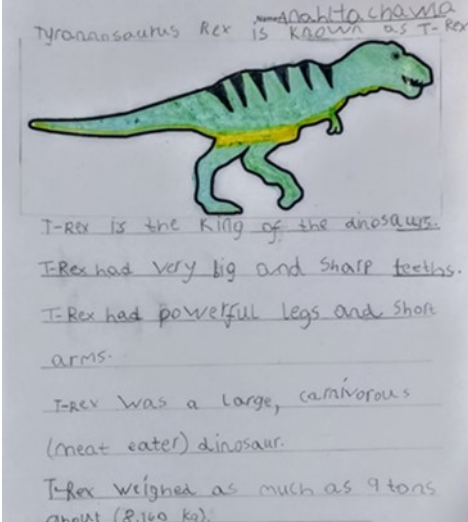 Name: Anahita Chawla
Tyrannosaurus Rex is known as T-Rex
T-Rex is the King of the dinosaurs.
T-Rex had very big and sharp teeths.
T-Rex had powerful legs and short
arms.
T-Rex was a large, carnivorous
(meat eater) dinosaur.
T-Rex weighed as much as 9 tons
about (8,160 kg).